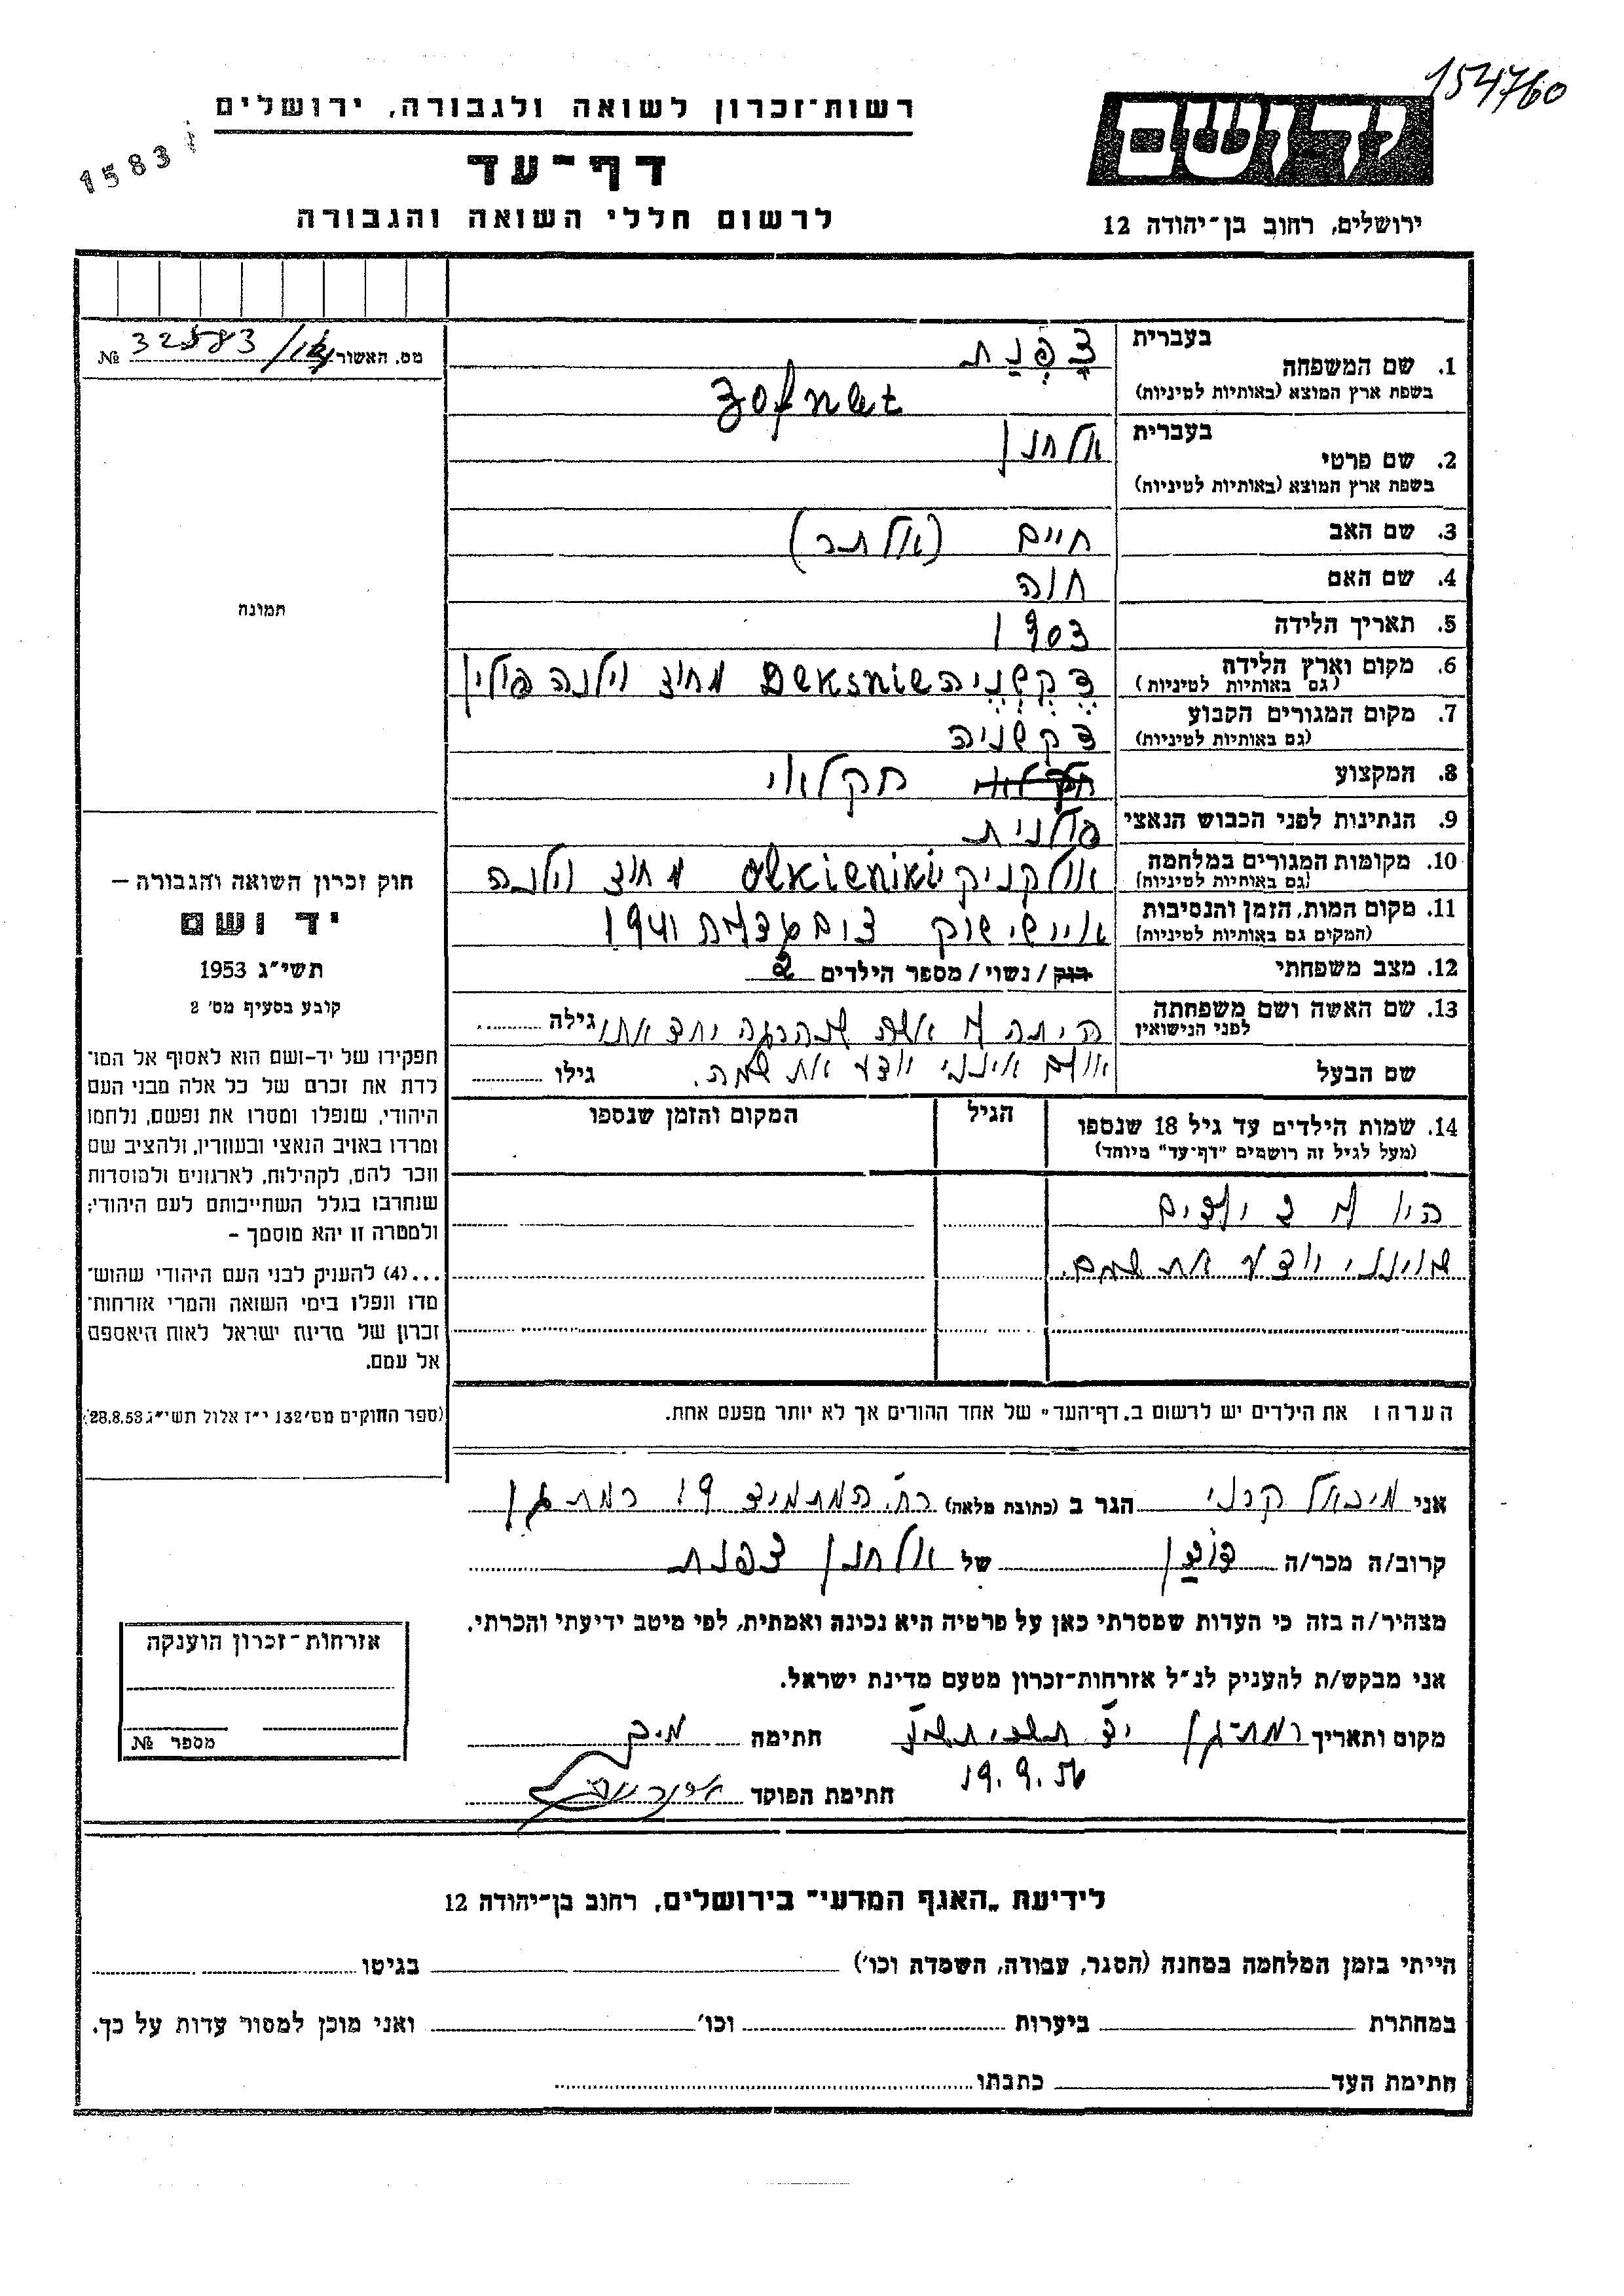 154760
רשות-זכרון לשואה ולגבורה, ירושלים
1583
דף-עד
לרשום חללי השואה והגבורה
ידושם
ירושלים, רחוב בן-יהודה 12
מס. האשור 32583/ №
בעברית צָפְנַת
1. שם המשפחה
בשפת ארץ המוצא (באותיות לטיניות) Zofnat
בעברית אלחנן
2. שם פרטי
בשפת ארץ המוצא (באותיות לטיניות)
3. שם האב חיים (אלתר)
4. שם האם חוה
5. תאריך הלידה 1903
6. מקום וארץ הלידה דקשניה Deksnie מחוז וילנה פולין
(גם באותיות לטיניות)
7. מקום המגורים הקבוע דקשניה
(גם באותיות לטיניות)
8. המקצוע חקלאי
9. הנתינות לפני הכבוש הנאצי פולנית
10. מקומות המגורים במלחמה אולקניקי Olkieniki מחוז וילנה
(גם באותיות לטיניות)
11. מקום המות, הזמן והנסיבות איישישוק 1941
(המקום גם באותיות לטיניות)
12. מצב משפחתי רוק/נשוי/מספר הילדים 2
13. שם האשה ושם משפחתה היתה לו אשה שנהרגה יחד אתו גילה
לפני הנישואין
שם הבעל אולם אינני יודע את שמה. גילו
14. שמות הילדים עד גיל 18 שנספו הגיל המקום והזמן שנספו
(מעל לגיל זה רושמים "דף-עד" מיוחד)
היו לו 2 ילדים
שאינני יודע את שמם.
הערה: את הילדים יש לרשום ב„דף-העד" של אחד ההורים אך לא יותר מפעם אחת.
תמונה
חוק זכרון השואה והגבורה –
יד ושם
תשי"ג 1953
קובע בסעיף מס' 2
תפקידו של יד-ושם הוא לאסוף אל המו־
לדת את זכרם של כל אלה מבני העם
היהודי, שנפלו ומסרו את נפשם, נלחמו
ומרדו באויב הנאצי ובעוזריו, ולהציב שם
וזכר להם, לקהילות, לארגונים ולמוסדות
שנחרבו בגלל השתייכותם לעם היהודי;
ולמטרה זו יהא מוסמך –
...(4) להעניק לבני העם היהודי שהוש־
מדו ונפלו בימי השואה והמרי אזרחות־
זכרון של מדינת ישראל לאות היאספם
אל עמם.
(ספר החוקים מס' 132 י"ז אלול תשי"ג 28.8.53)
אני מיכאל קרני הגר ב (כתובת מלאה) רח. המתמיד 19 רמת גן
קרוב/ה מכר/ה של אלחנן צפנת
מצהיר/ה בזה כי העדות שמסרתי כאן על פרטיה היא נכונה ואמתית, לפי מיטב ידיעתי והכרתי.
אני מבקש/ת להעניק לנ"ל אזרחות-זכרון מטעם מדינת ישראל.
מקום ותאריך רמת-גן חתימה
19.9.56
חתימת הפוקד
אזרחות-זכרון הוענקה
מספר №
לידיעת „האגף המדעי" בירושלים, רחוב בן-יהודה 12
הייתי בזמן המלחמה במחנה (הסגר, עבודה, השמדה וכו') בגיטו
במחתרת ביערות וכו' ואני מוכן למסור עדות על כך.
חתימת העד כתבתו